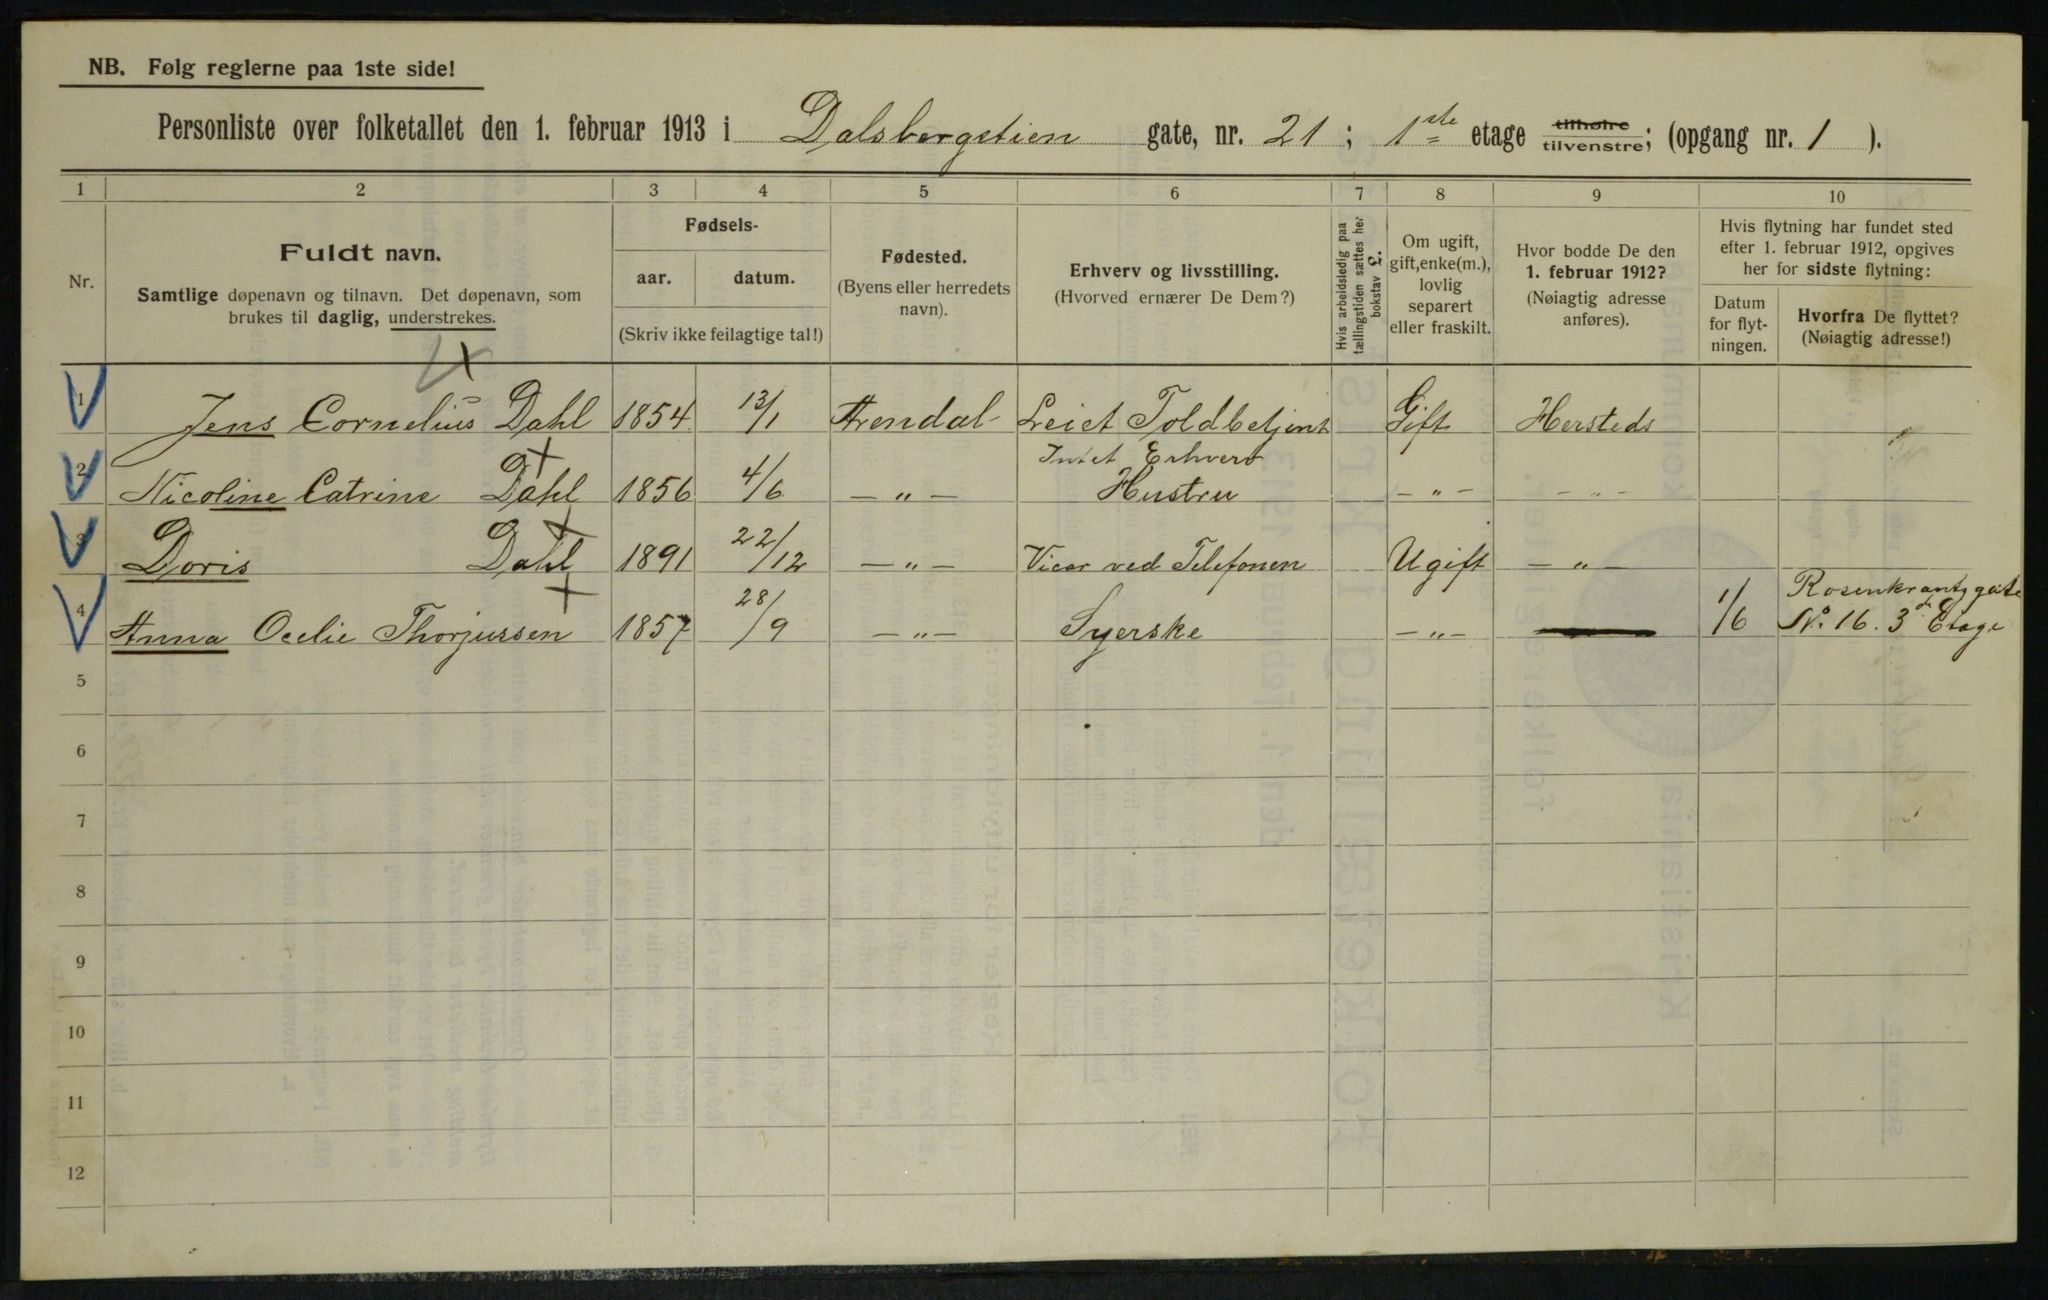 NB. Følg reglerne paa 1ste side!
Personliste over folketallet den 1. februar 1913 i Dalsbergstien gate, nr. 21 ; 1ste etage tilhøire tilvenstre; (opgang nr. 1 ).
1 2 3 4 5 6 7 8 9 10
Nr.
Fuldt navn.
Samtlige døpenavn og tilnavn. Det døpenavn, som
brukes til daglig, understrekes.
Fødsels-
aar. datum.
(Skriv ikke feilagtige tal!)
Fødested.
(Byens eller herredets
navn).
Erhverv og livsstilling.
(Hvorved ernærer De Dem?)
Hvis arbeidsledig paa
tællingstiden sættes her
bokstav L.
Om ugift,
gift, enke(m.),
lovlig
separert
eller fraskilt.
Hvor bodde De den
1. februar 1912?
(Nøiagtig adresse
anføres).
Hvis flytning har fundet sted
efter 1. februar 1912, opgives
her for sidste flytning:
Datum
for flyt-
ningen.
Hvorfra De flyttet?
(Nøiagtig adresse!)
1 Jens Cornelius Dahl 1854 13/1 Arendal Toldbetjent Gift Hersteds
Intet Erhverv
2 Nicoline Catrine Dahl 1856 4/6 — „ — Hustru — „ — — „ —
3 Doris Dahl 1891 22/12 — „ — Vicar ved Telefonen Ugift — „ —
4 Anna Ocelie Thorjussen 1857 28/9 — „ — Syerske — „ — 1/6 Rosenkrantzgate
No 16. 3d Etage
5
6
7
8
9
10
11
12